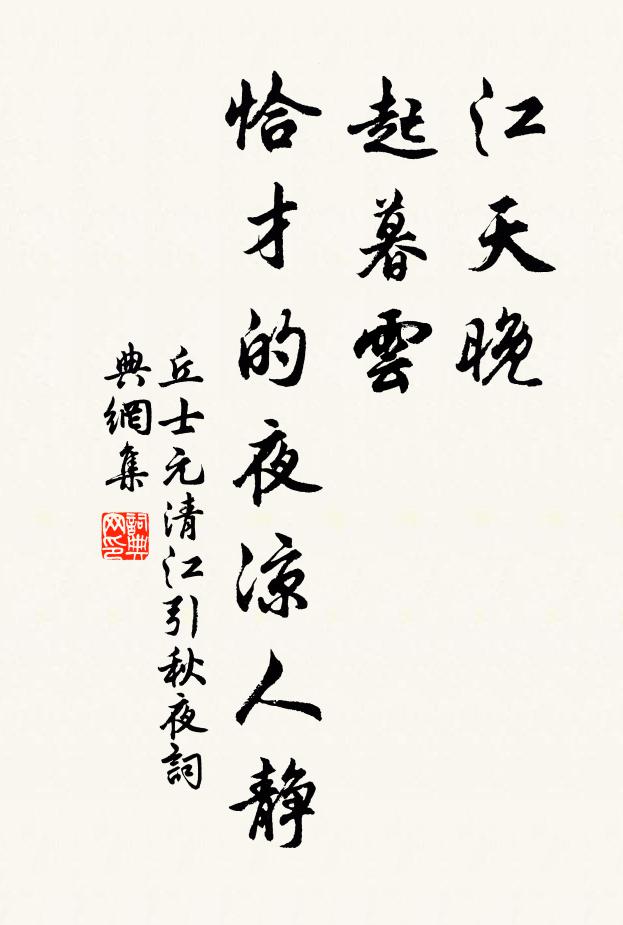 江天晚
起暮雲
恰才的夜涼人靜
丘士元清江引秋夜詞
典網集
詞典
网印